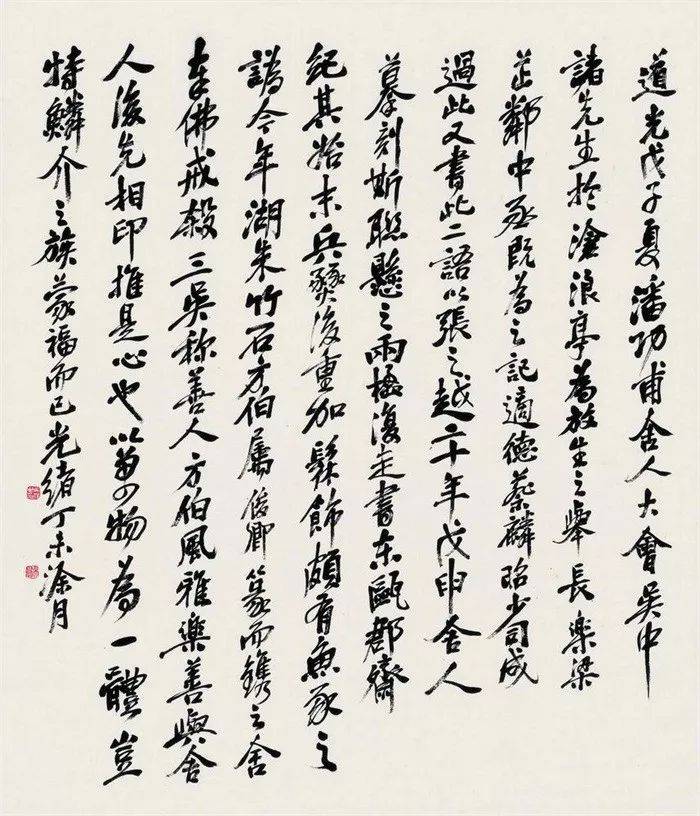 道光戊子夏潘功甫舍人大會吳中
諸先生於滄浪亭為放生之舉長樂梁
芷鄰中丞既為之記適德蔡麟昭少司成
過此又書此二語以張之越二十年戊申舍人
摹刻斯聯懸之兩楹復走書東甌郡齋
紀其始末兵燹後重加髹飾頗有魚豕之
譌今平湖朱竹石方伯屬俊卿篆而鐫之舍
奉佛戒殺三吳称善人方伯風雅樂善與舍
人後先相印推是心也以萬物為一體豈
特鱗介之族蒙福而已光緒丁未涂月